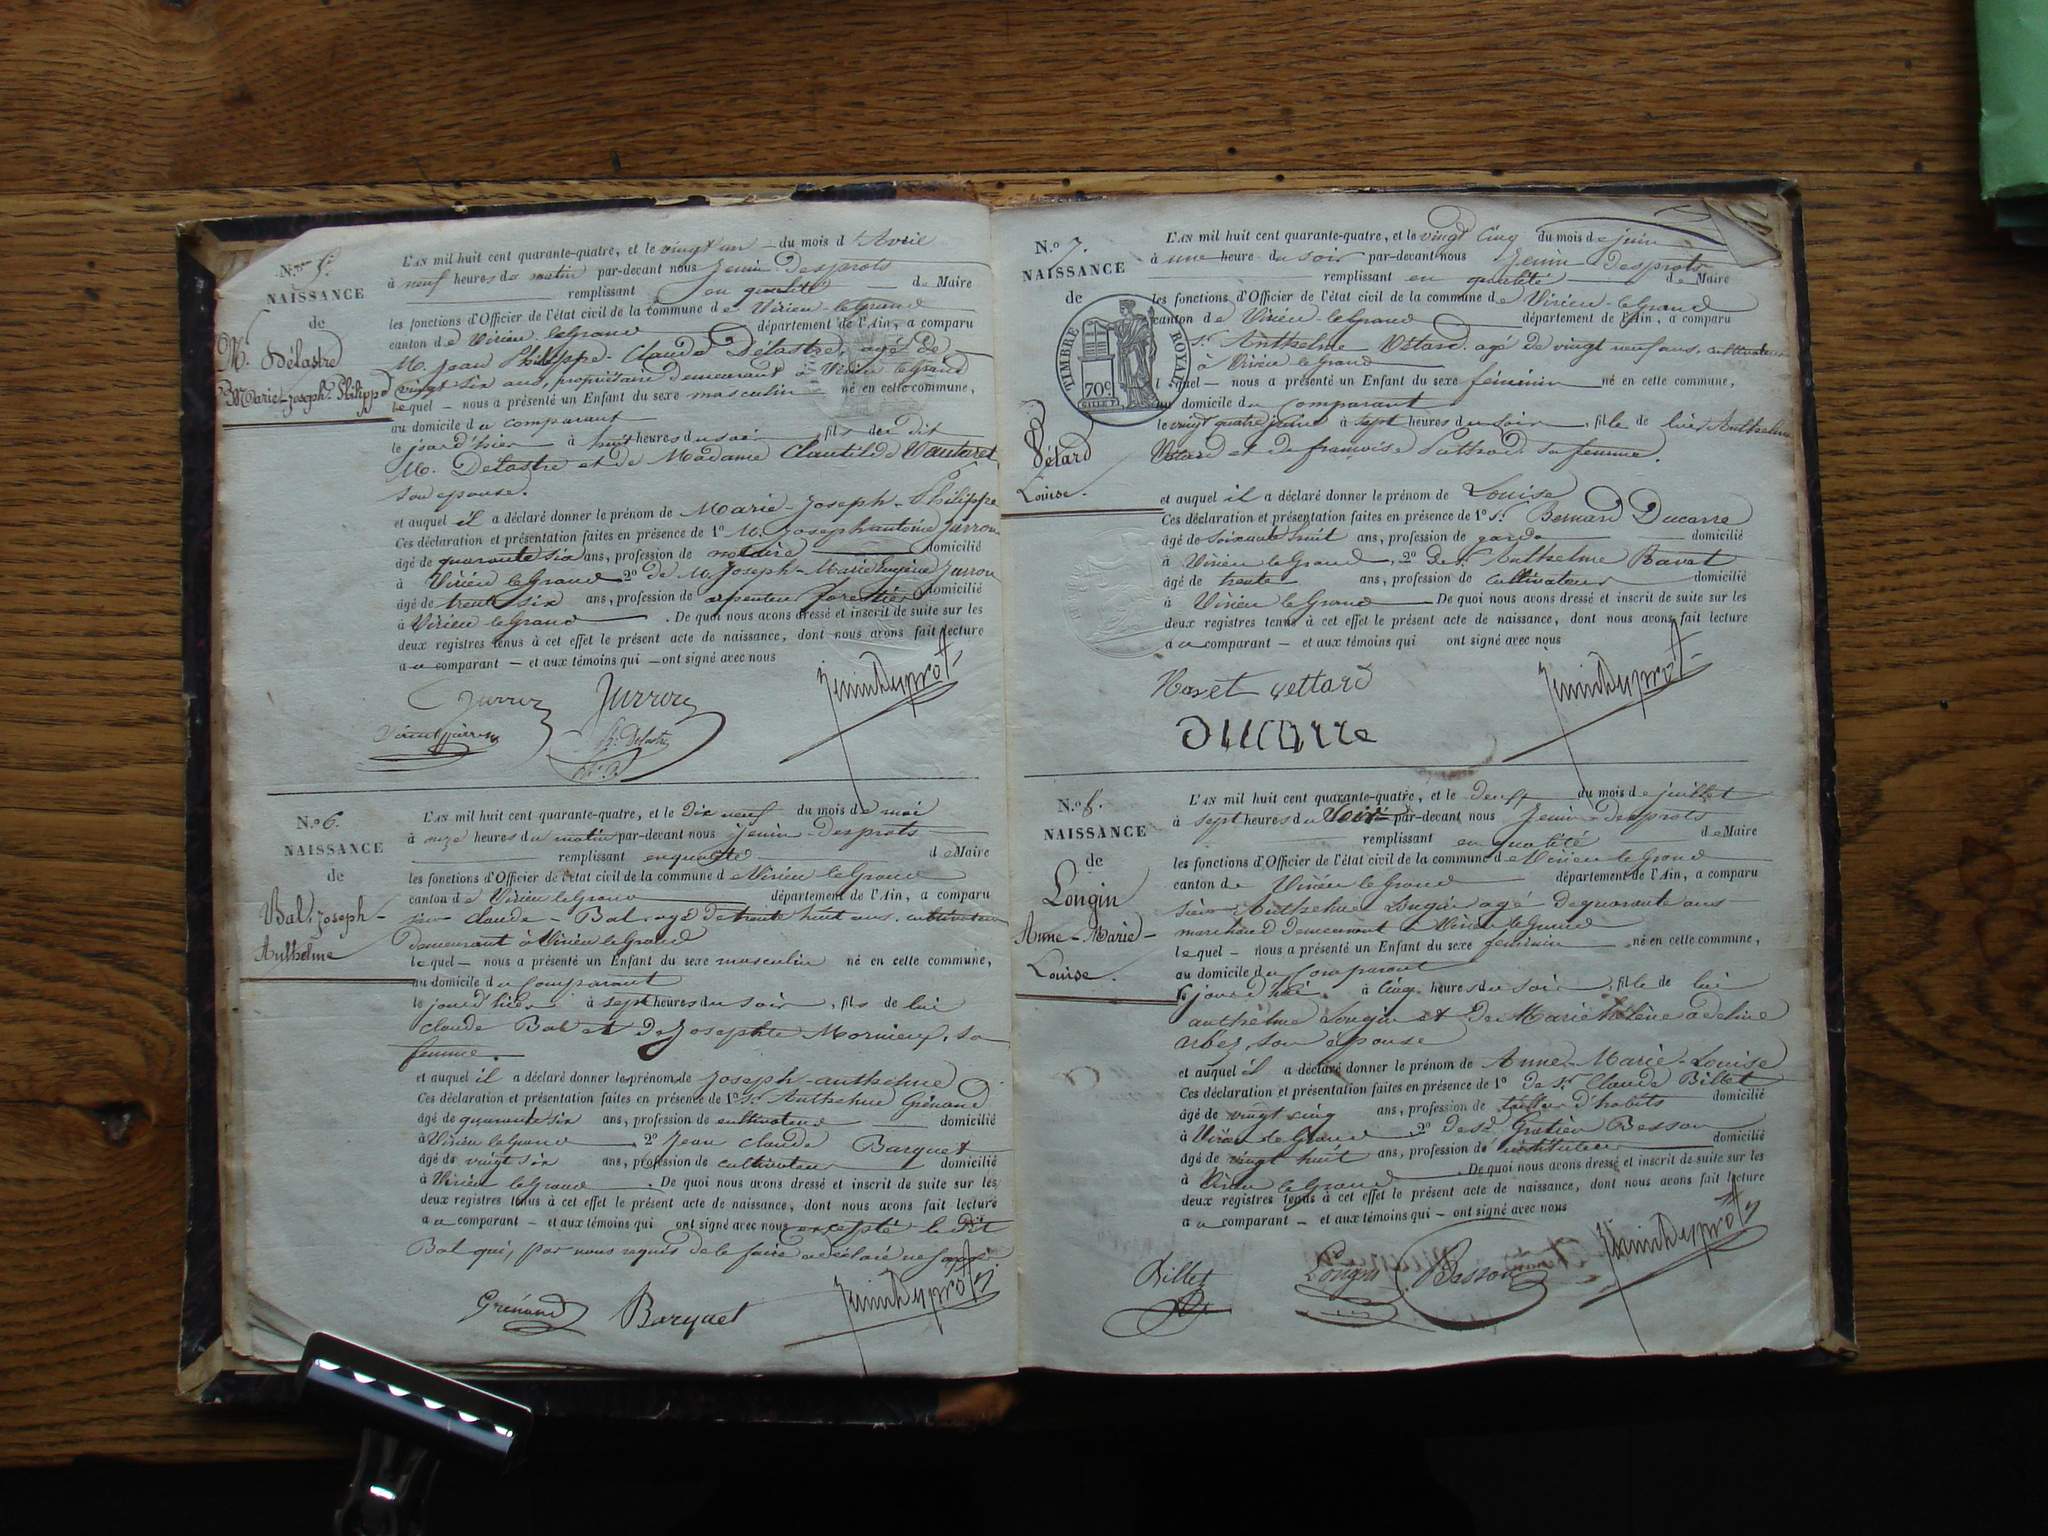 N.º 5.
NAISSANCE
de
M. Délastre
Marie-Joseph-Philippe
L'AN mil huit cent quarante-quatre, et le vingt un du mois d'Avril
à neuf heures du matin par-devant nous Jenin Desprots
remplissant en qualité de Maire
les fonctions d'Officier de l'état civil de la commune de Virieu-le-Grand
canton de Virieu-le-Grand département de l'Ain, a comparu
M. Jean Philippe-Claude Délastre, agé de
vingt six ans, propriétaire demeurant à Virieu le Grand
lequel — nous a présenté un Enfant du sexe masculin né en cette commune,
au domicile du comparant
le jour d'hier à huit heures du soir, fils du dit
M. Délastre et de Madame Clautilde Vautaret
son epouse.
et auquel il a déclaré donner le prénom de Marie-Joseph-Philippe
Ces déclaration et présentation faites en présence de 1º M. Joseph antoine Jurron
âgé de quarante six ans, profession de notaire domicilié
à Virieu le Grand 2º de M. Joseph-Marie Eugène Jurron
âgé de trente six ans, profession de arpenteur forestier domicilié
à Virieu le Grand. De quoi nous avons dressé et inscrit de suite sur les
deux registres tenus à cet effet le présent acte de naissance, dont nous avons fait lecture
au comparant — et aux témoins qui — ont signé avec nous
Jurron Jurron JeninDesprots
Ph. Delastre
N.º 6.
NAISSANCE
de
Bal, Joseph-
Anthelme
L'AN mil huit cent quarante-quatre, et le Dix neuf du mois de mai
à onze heures du matin par-devant nous Jenin-Desprots
remplissant en qualité de Maire
les fonctions d'Officier de l'état civil de la commune de Virieu le Grand
canton de Virieu le Grand département de l'Ain, a comparu
sieur claude-Bal, agé de trente huit ans, cultivateur
demeurant à Virieu le Grand
lequel — nous a présenté un Enfant du sexe masculin né en cette commune,
au domicile du comparant
le jour d'hier à sept heures du soir, fils de lui
claude Bal et de Josephte Mornieux, sa
femme.
et auquel il a déclaré donner le prénom de Joseph-anthelme
Ces déclaration et présentation faites en présence de 1º Sr. Anthelme Grénaud
âgé de quarante six ans, profession de cultivateur domicilié
à Virieu le Grand 2º Jean Claude Barquet
âgé de vingt six ans, profession de cultivateur domicilié
à Virieu le Grand. De quoi nous avons dressé et inscrit de suite sur les
deux registres tenus à cet effet le présent acte de naissance, dont nous avons fait lecture
au comparant — et aux témoins qui ont signé avec nous excepté le Dit
Bal qui, par nous requis de le faire a déclaré ne savoir
Grénaud Barquet JeninDesprots
N.º 7.
NAISSANCE
de
TIMBRE ROYAL
70c.
Vétard
Louise.
L'AN mil huit cent quarante-quatre, et le vingt Cinq du mois de juin
à une heure du soir par-devant nous Jenin Desprots
remplissant en qualité de Maire
les fonctions d'Officier de l'état civil de la commune de Virieu-le Grand
canton de Virieu le Grand département de l'Ain, a comparu
Sr. Anthelme Vétard agé de vingt neuf ans, cultivateur
à Virieu le Grand
lequel — nous a présenté un Enfant du sexe féminin né en cette commune,
au domicile du comparant
le vingt quatre juin à sept heures du soir, fille de lui Anthelme
Vétard et de françoise sa femme.
et auquel il a déclaré donner le prénom de Louise
Ces déclaration et présentation faites en présence de 1º Sr. Bernard Ducarre
âgé de soixante huit ans, profession de garde domicilié
à Virieu le Grand, 2º de Sr. Anthelme Ravet
âgé de trente ans, profession de cultivateur domicilié
à Virieu le Grand. De quoi nous avons dressé et inscrit de suite sur les
deux registres tenus à cet effet le présent acte de naissance, dont nous avons fait lecture
au comparant — et aux témoins qui ont signé avec nous
Ravet vettard JeninDesprots
DUCARRE
N.º 8.
NAISSANCE
de
Longin
Anne-Marie-
Louise.
L'AN mil huit cent quarante-quatre, et le deux du mois de juillet
à sept heures du soir par-devant nous Jenin-desprots
remplissant en qualité de Maire
les fonctions d'Officier de l'état civil de la commune de Virieu le Grand
canton de Virieu le Grand département de l'Ain, a comparu
sieur Anthelme Longin agé de quarante ans
marchand demeurant à Virieu le Grand
lequel — nous a présenté un Enfant du sexe feminin né en cette commune,
au domicile du Comparant
le jour d'hui à Cinq heures du soir, fille de lui
anthelme Longin et de Marie hélène adeline
son epouse
et auquel il a déclaré donner le prénom de Anne-Marie-Louise
Ces déclaration et présentation faites en présence de 1º de Sr. Claude Billet
âgé de vingt cinq ans, profession de tailleur d'habits domicilié
à Virieu le Grand 2º de Sr. Gratien Besson
âgé de vingt huit ans, profession de instituteur domicilié
à Virieu le Grand. De quoi nous avons dressé et inscrit de suite sur les
deux registres tenus à cet effet le présent acte de naissance, dont nous avons fait lecture
au comparant — et aux témoins qui — ont signé avec nous
Billet Longin Besson JeninDesprots